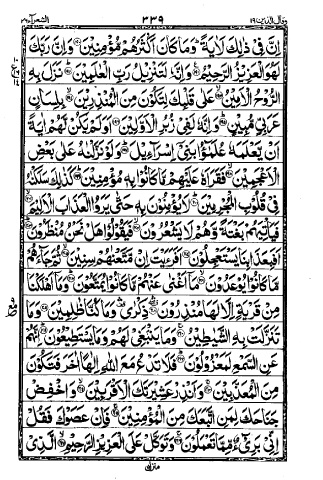 وقال الذین ۱۹ ۳۳۹ الشعرآء ۲۶
اِنَّ فِیْ ذٰلِكَ لَاٰیَةً ؕ وَمَا كَانَ اَكْثَرُهُمْ مُّؤْمِنِیْنَ وَاِنَّ رَبَّكَ
لَهُوَ الْعَزِیْزُ الرَّحِیْمُ وَاِنَّهٗ لَتَنْزِیْلُ رَبِّ الْعٰلَمِیْنَ نَزَلَ بِهِ
الرُّوْحُ الْاَمِیْنُ عَلٰی قَلْبِكَ لِتَكُوْنَ مِنَ الْمُنْذِرِیْنَ بِلِسَانٍ
عَرَبِیٍّ مُّبِیْنٍ وَاِنَّهٗ لَفِیْ زُبُرِ الْاَوَّلِیْنَ اَوَلَمْ یَكُنْ لَّهُمْ اٰیَةً
اَنْ یَّعْلَمَهٗ عُلَمٰٓؤُا بَنِیْۤ اِسْرَآءِیْلَ وَلَوْ نَزَّلْنٰهُ عَلٰی بَعْضِ
الْاَعْجَمِیْنَ فَقَرَاَهٗ عَلَیْهِمْ مَّا كَانُوْا بِهٖ مُؤْمِنِیْنَ كَذٰلِكَ سَلَكْنٰهُ
فِیْ قُلُوْبِ الْمُجْرِمِیْنَ لَا یُؤْمِنُوْنَ بِهٖ حَتّٰی یَرَوُا الْعَذَابَ الْاَلِیْمَ
فَیَاْتِیَهُمْ بَغْتَةً وَّهُمْ لَا یَشْعُرُوْنَ فَیَقُوْلُوْا هَلْ نَحْنُ مُنْظَرُوْنَ
اَفَبِعَذَابِنَا یَسْتَعْجِلُوْنَ اَفَرَءَیْتَ اِنْ مَّتَّعْنٰهُمْ سِنِیْنَ ثُمَّ جَآءَهُمْ
مَّا كَانُوْا یُوْعَدُوْنَ مَاۤ اَغْنٰی عَنْهُمْ مَّا كَانُوْا یُمَتَّعُوْنَ وَمَاۤ اَهْلَكْنَا
مِنْ قَرْیَةٍ اِلَّا لَهَا مُنْذِرُوْنَ ذِكْرٰی وَمَا كُنَّا ظٰلِمِیْنَ وَمَا
تَنَزَّلَتْ بِهِ الشَّیٰطِیْنُ وَمَا یَنْۢبَغِیْ لَهُمْ وَمَا یَسْتَطِیْعُوْنَ اِنَّهُمْ
عَنِ السَّمْعِ لَمَعْزُوْلُوْنَ فَلَا تَدْعُ مَعَ اللّٰهِ اِلٰهًا اٰخَرَ فَتَكُوْنَ
مِنَ الْمُعَذَّبِیْنَ وَاَنْذِرْ عَشِیْرَتَكَ الْاَقْرَبِیْنَ وَاخْفِضْ
جَنَاحَكَ لِمَنِ اتَّبَعَكَ مِنَ الْمُؤْمِنِیْنَ فَاِنْ عَصَوْكَ فَقُلْ
اِنِّیْ بَرِیْٓءٌ مِّمَّا تَعْمَلُوْنَ وَتَوَكَّلْ عَلَی الْعَزِیْزِ الرَّحِیْمِ الَّذِیْ